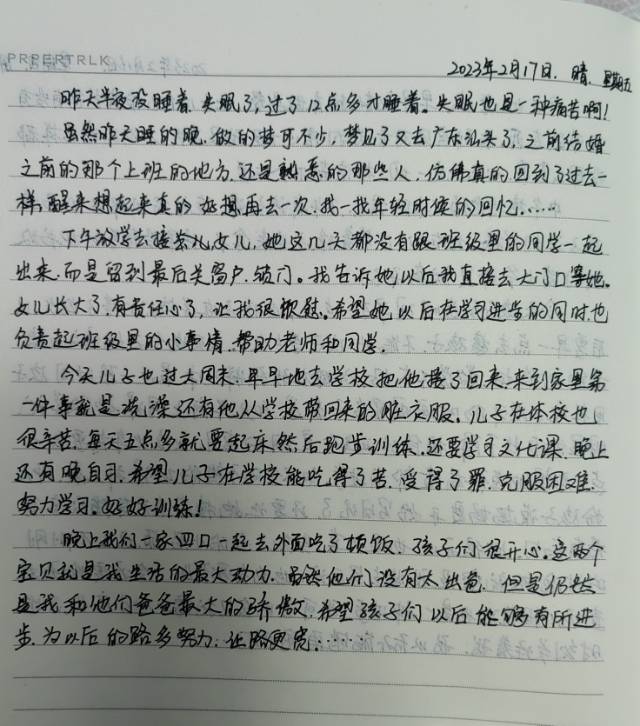 PRPERTRLK
2023年2月17日. 晴. 星期五
昨天半夜没睡着,失眠了,过了12点多才睡着。失眠也是一种痛苦啊!
虽然昨天睡的晚.做的梦可不少,梦见了又去广东汕头了,之前结婚
之前的那个上班的地方.还是熟悉的那些人,仿佛真的回到了过去一
样,醒来想起来真的好想再去一次.找一找年轻时候的回忆......
下午放学去接女儿,她这几天都没有跟班级里的同学一起
出来.而是留到最后关窗户.锁门。我告诉她以后我直接去大门口等她。
女儿长大了.有责任心了,让我很欣慰。希望她以后在学习进步的同时.也
负责起班级里的小事情.帮助老师和同学.
今天儿子也过大周末.早早地去学校把他接了回来.来到家里第
一件事就是洗澡.还有他从学校带回来的脏衣服。儿子在体校也
很辛苦.每天五点多就要起床然后跑步训练.还要学习文化课.晚上
还有晚自习.希望儿子在学校能吃得了苦.受得了罪.克服困难.
努力学习.好好训练!
晚上我们一家四口一起去外面吃了顿饭.孩子们很开心。这两个
宝贝就是我生活的最大动力.虽然他们没有太出色.但是仍然
是我和他们爸爸最大的骄傲.希望孩子们以后能够有所进
步.为以后的路多努力.让路更宽......